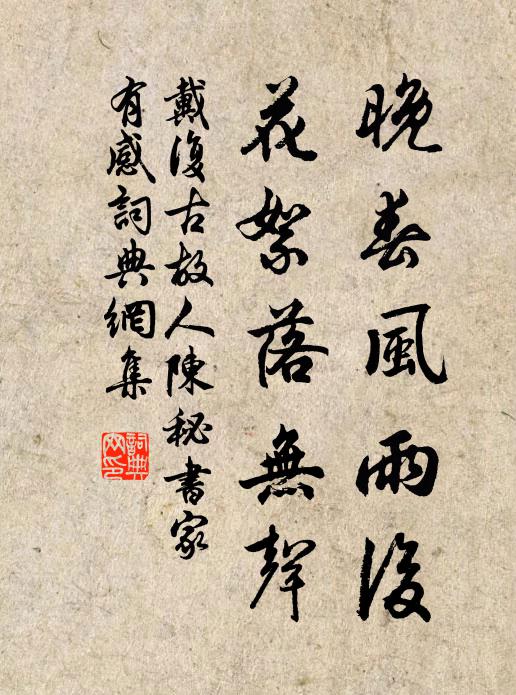 晚春風雨後
花絮落無聲
戴復古故人陳秘書家
有感詞典網集
詞典網印